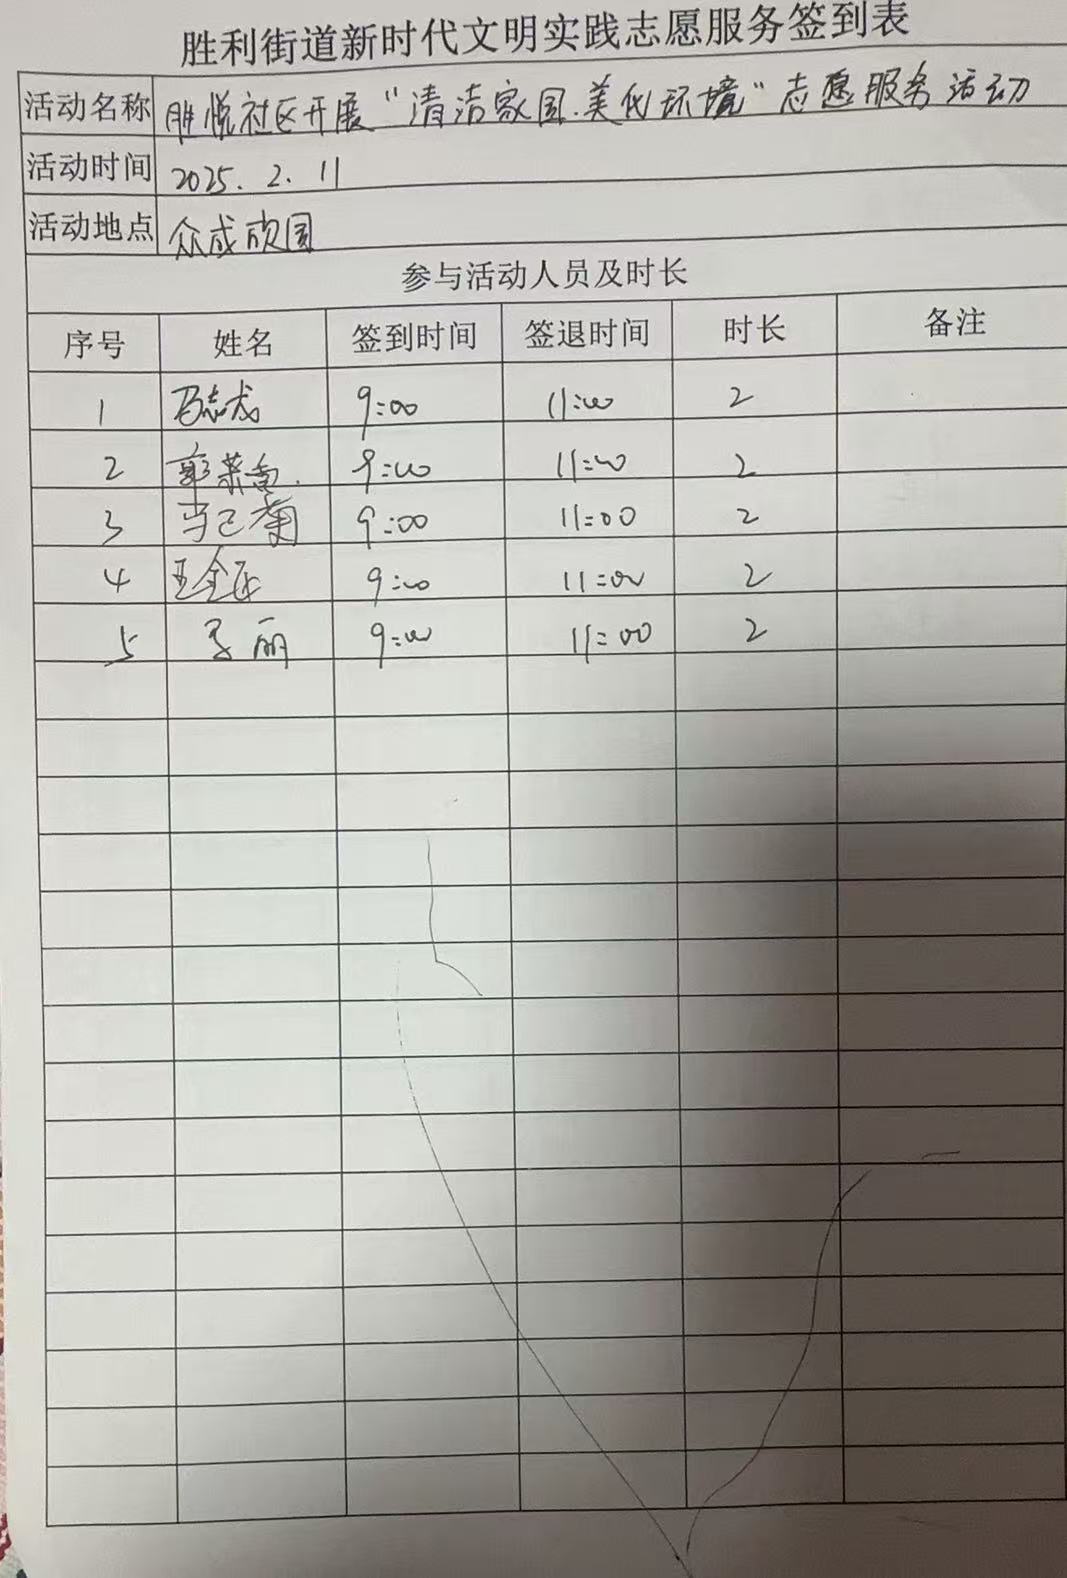 胜利街道新时代文明实践志愿服务签到表
活动名称 胜悦社区开展“清洁家园.美化环境”志愿服务活动
活动时间 2025.2.11
活动地点 众成颐园
参与活动人员及时长
序号 姓名 签到时间 签退时间 时长 备注
1 9:00 11:00 2
2 9:00 11:00 2
3 9:00 11:00 2
4 9:00 11:00 2
5 李丽 9:00 11:00 2